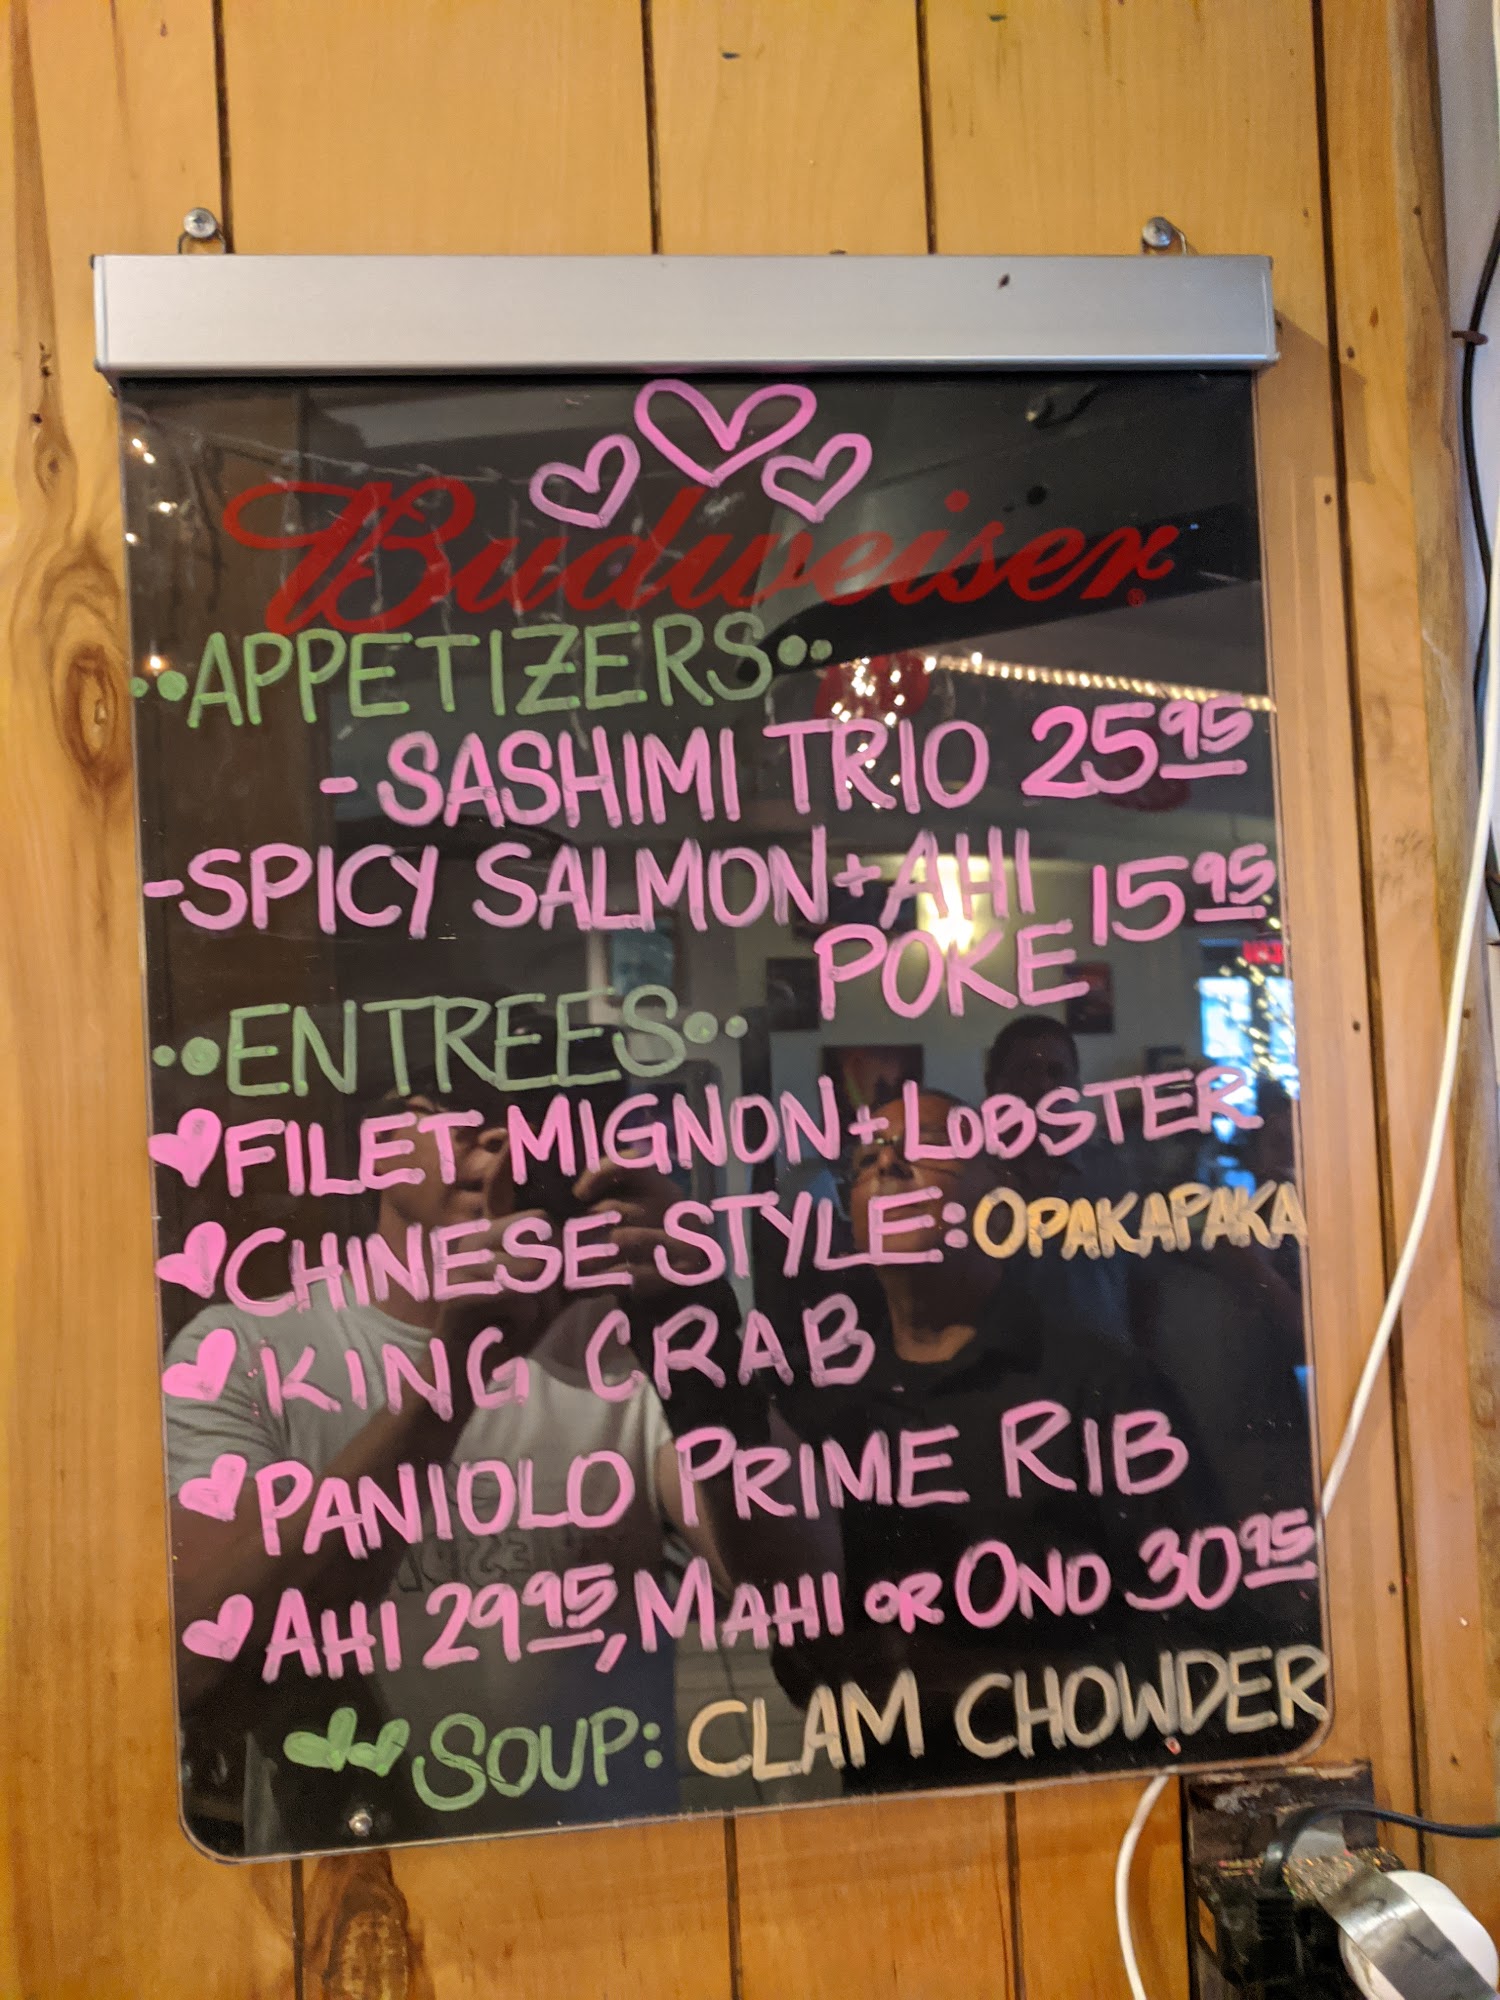 Budweiser®
APPETIZERS
-SASHIMI TRIO 25 95
-SPICY SALMON+AHI 15 95
POKE
ENTREES
FILET MIGNON+LOBSTER
CHINESE STYLE: OPAKAPAKA
KING CRAB
PANIOLO PRIME RIB
AHI 29 95, MAHI OR ONO 30 95
SOUP: CLAM CHOWDER